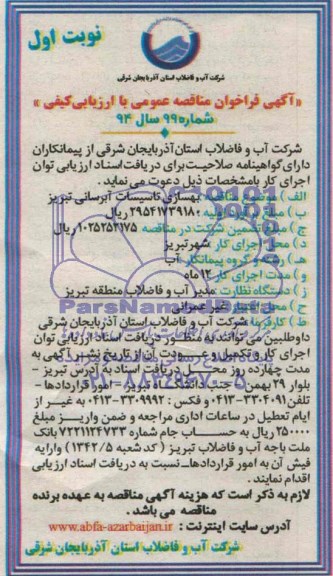 نوبت اول
شرکت آب و فاضلاب استان آذربایجان شرقی
«آگهی فراخوان مناقصه عمومی با ارزیابی کیفی»
شماره ۹۹ سال ۹۴
شرکت آب و فاضلاب استان آذربایجان شرقی از پیمانکاران
دارای گواهینامه صلاحیت برای دریافت اسناد ارزیابی توان
اجرای کار بامشخصات ذیل دعوت می نماید.
الف) موضوع مناقصه: بهسازی تاسیسات آبرسانی تبریز
ب) مبلغ برآورد اولیه ۲۹۵۴۱۷۳۹۱۸۰ ریال
ج) مبلغ تضمین شرکت در مناقصه ۱۰۲۵۲۵۲۱۷۵ ریال
د) محل اجرای کار شهر تبریز
ه) رشته و گروه پیمانکار آب
و) مدت اجرای کار ۱۲ ماه
ز) دستگاه نظارت مدیر آب و فاضلاب منطقه تبریز
ح) محل اعتبار غیر عمرانی
ط) کارفرما شرکت آب و فاضلاب استان آذربایجان شرقی
داوطلبین می توانند به منظور دریافت اسناد ارزیابی توان
اجرای کار و تکمیل و عودت آن از تاریخ نشر آگهی به
مدت چهارده روز محل دریافت اسناد به آدرس تبریز -
بلوار ۲۹ بهمن - جنب دانشگاه امور قراردادها -
تلفن ۳۳۰۴۰۹۱-۰۴۱۳ و فکس: ۳۳۰۹۹۹۲-۰۴۱۳ به غیر از
ایام تعطیل در ساعات اداری مراجعه و ضمن واریز مبلغ
۲۵۰۰۰۰ ریال به حساب جام شماره ۷۲۲۱۱۲۴۷۳۳ بانک
ملت باجه آب و فاضلاب تبریز (کد شعبه ۱۳۴۲/۵) وارایه
فیش آن به امور قراردادها، نسبت به دریافت اسناد ارزیابی
اقدام نمایند.
لازم به ذکر است که هزینه آگهی مناقصه به عهده برنده
مناقصه می باشد.
آدرس سایت اینترنت: www.abfa-azarbaijan.ir
شرکت آب و فاضلاب استان آذربایجان شرقی